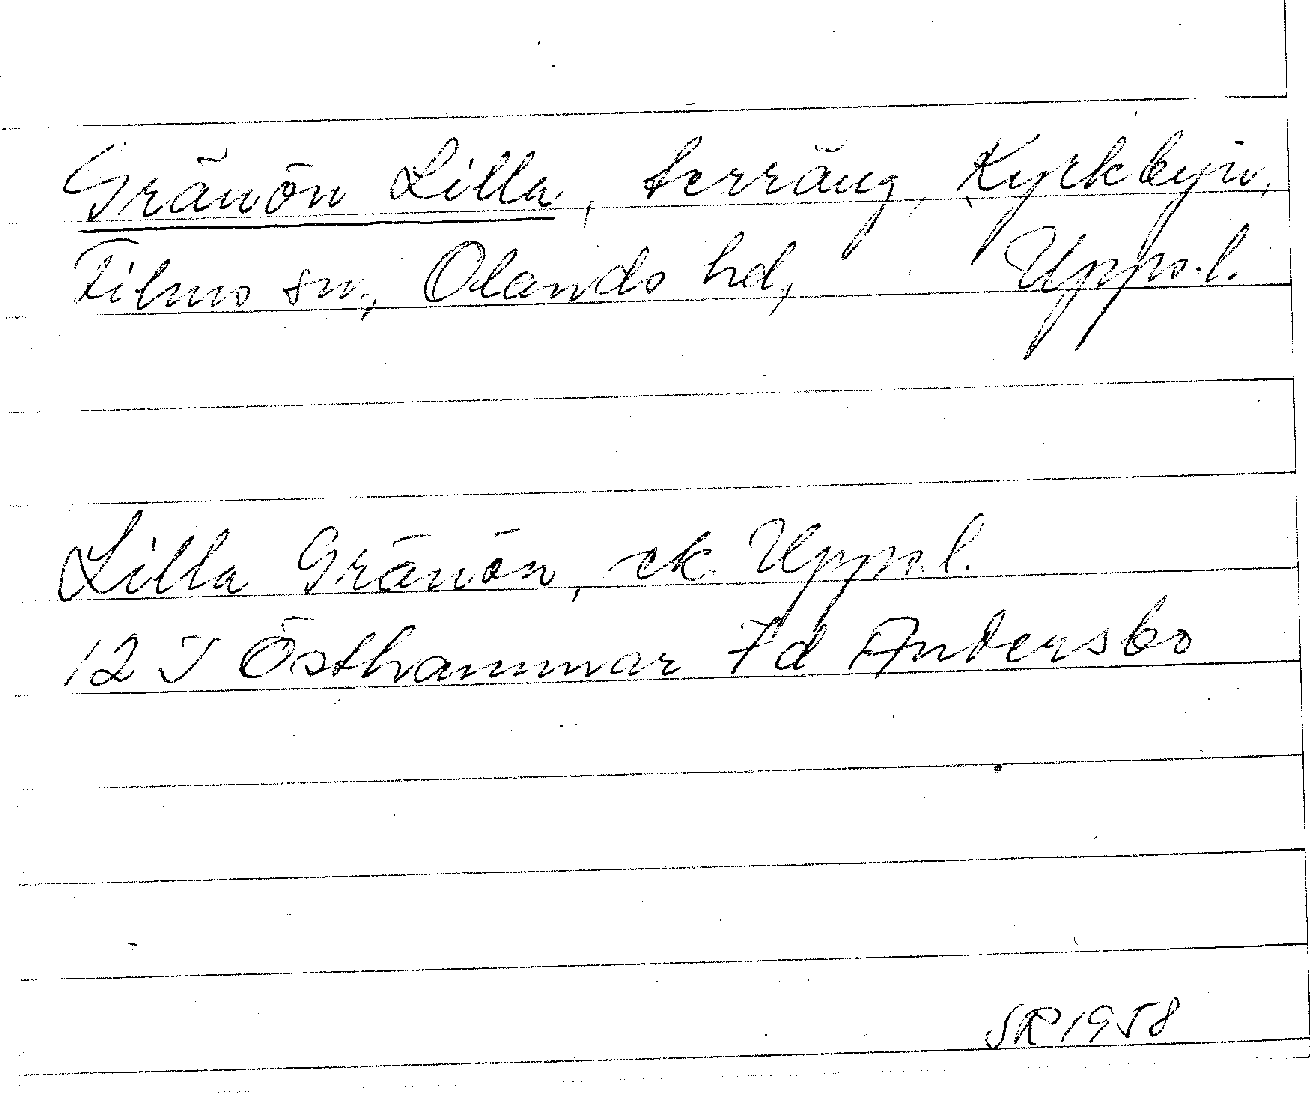 Gränön Lilla, terräng, Kyrkbyn,
Films sn, Olands hd, Upps.l.
Lilla Gränön, ek. Upps.l.
12 I Östhammar 7d Andersbo
SR 1958